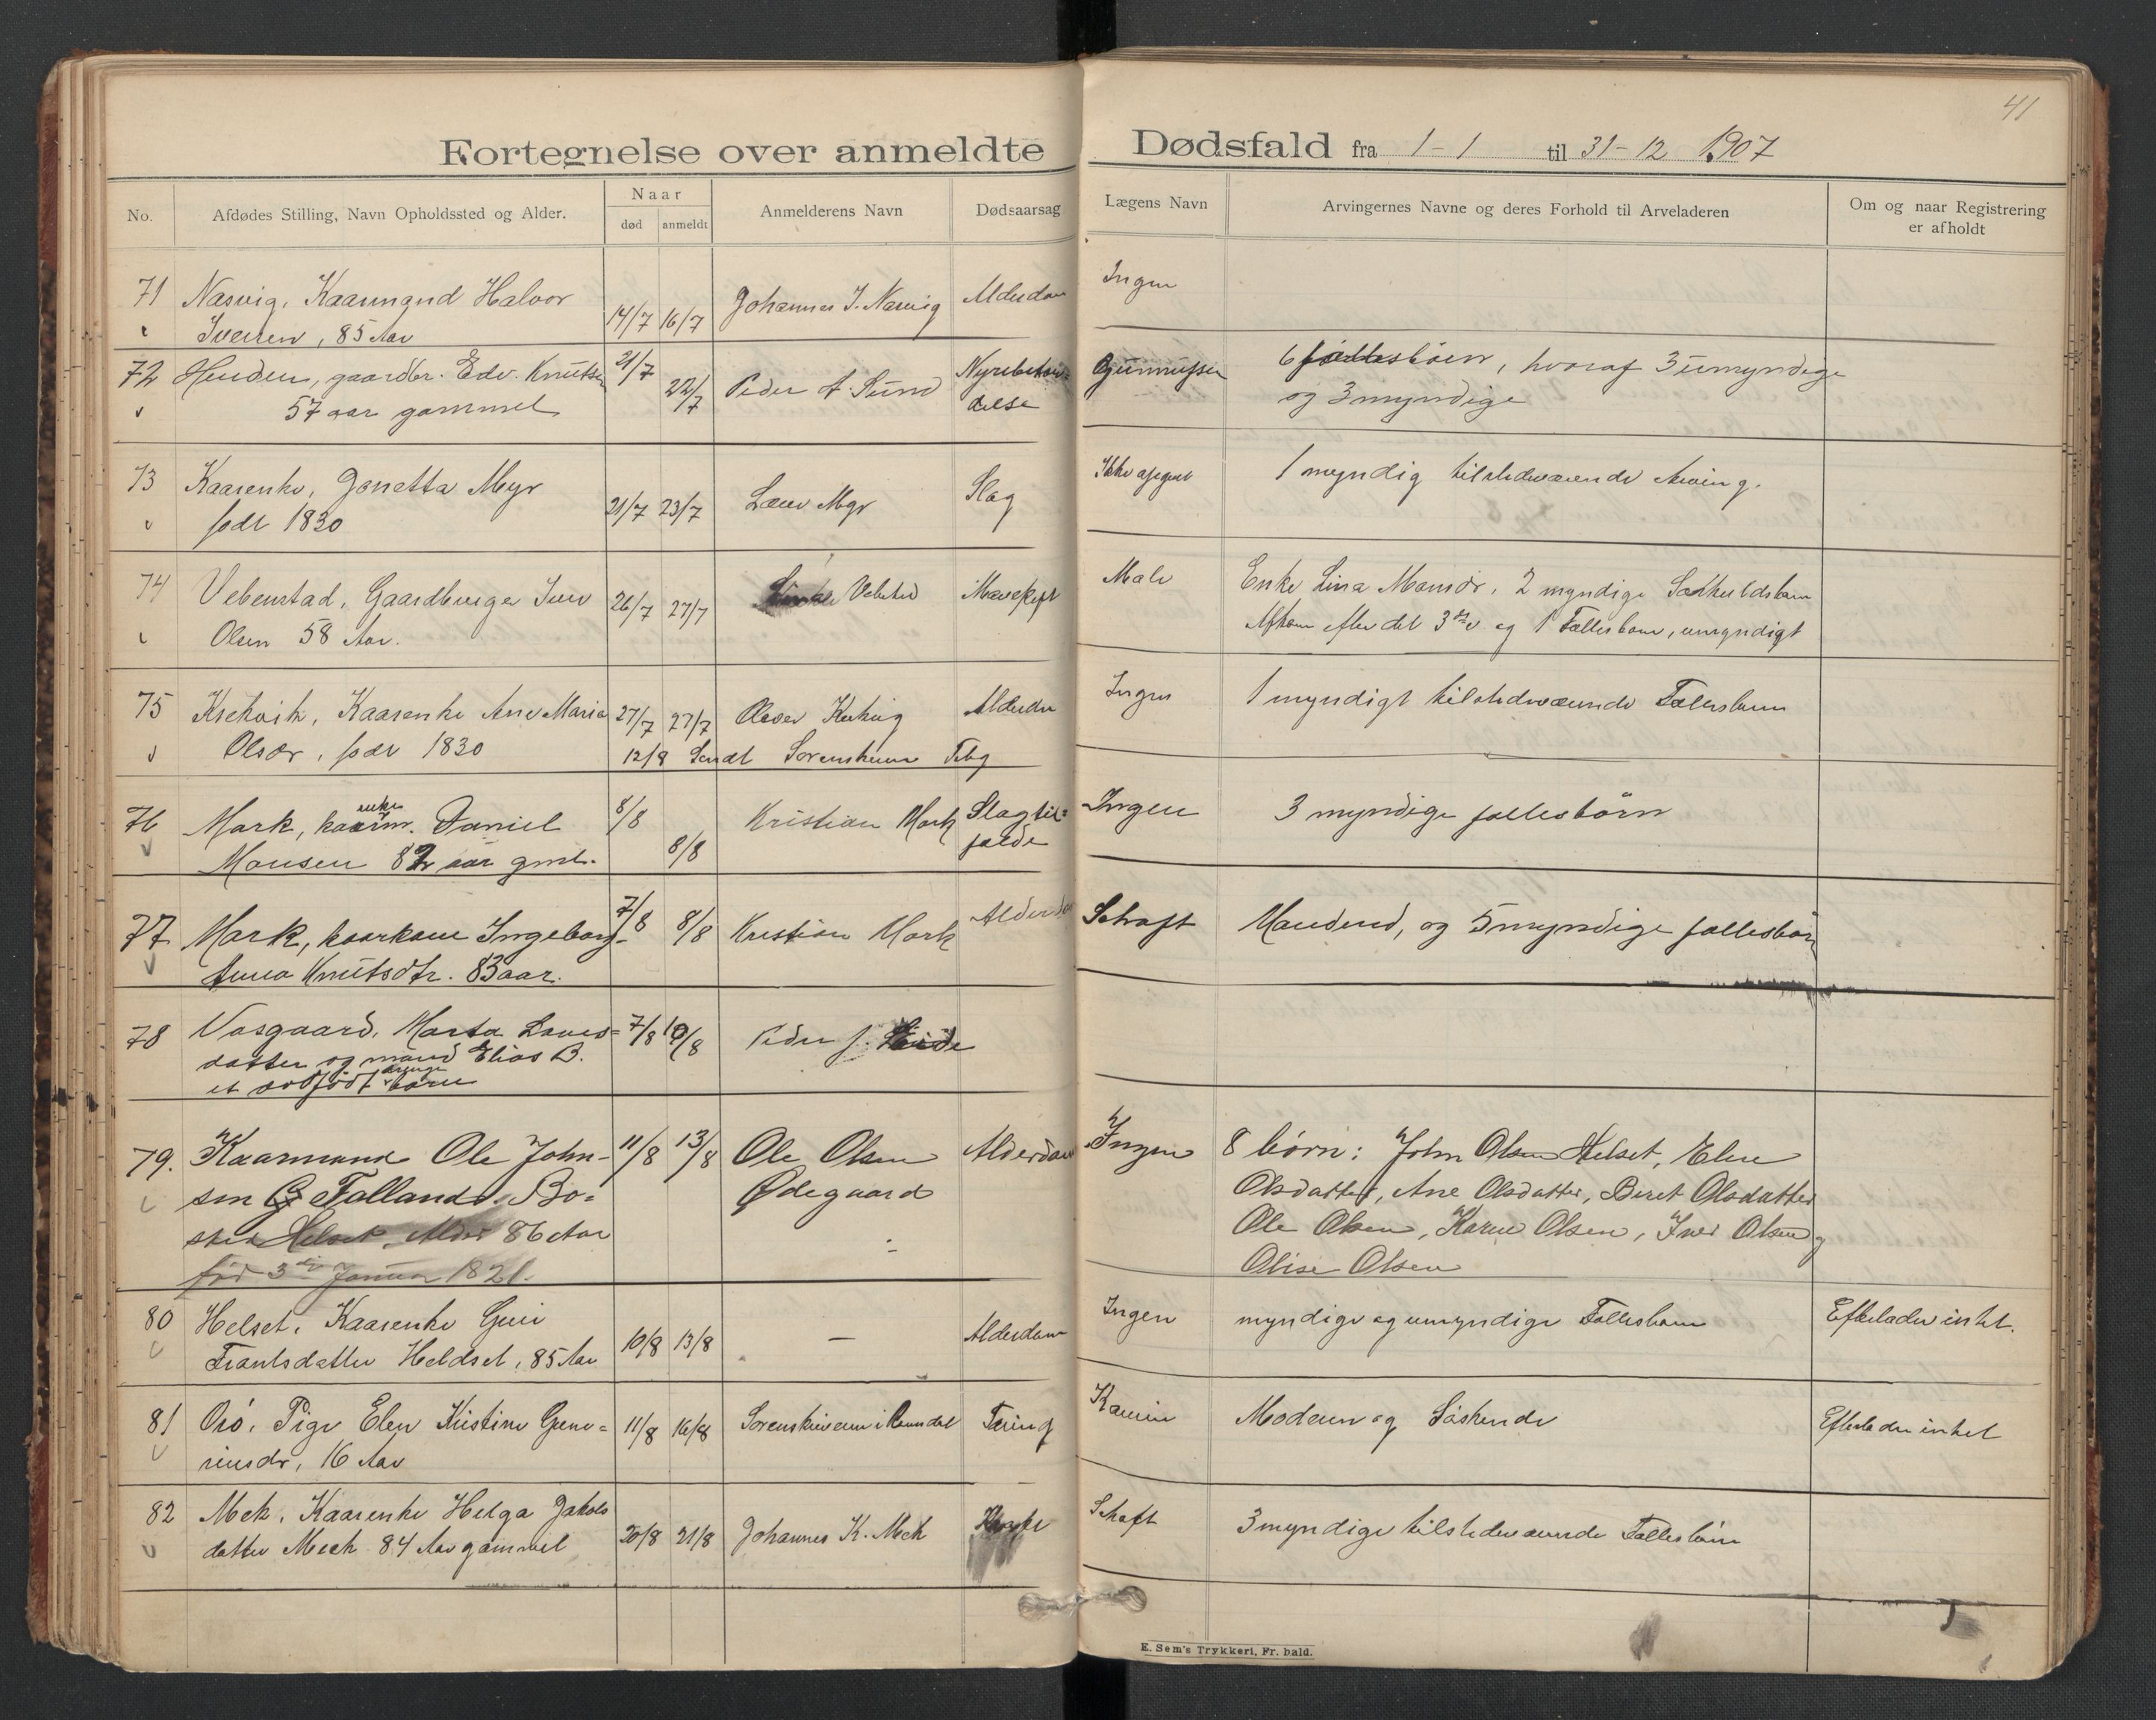 41
Fortegnelse over anmeldte Dødsfald fra 1-1 til 31-12 1907
No.
Afdødes Stilling, Navn Opholdssted og Alder.
Naar
død
anmeldt
Anmelderens Navn
Dødsaarsag
Lægens Navn
Arvingernes Navne og deres Forhold til Arveladeren
Om og naar Registrering
er afholdt
71 Næsvig, Kaarmand Halvor 14/7 16/7 Johannes I. Næsvig Alderdom Ingen
Iversen, 85 Aar
72 Henden, gaardbr. Edv. Knutsen 21/7 22/7 Peder A. Sund 6 fællesbörn, hvoraf 3 umyndige
57 aar gammel og 3 myndige
73 Kaarenke, Jonetta Myr 21/7 23/7 Myr Slag Ikke 1 myndig tilstedeværende Arving.
født 1830
74 Gaardbruger Iver 26/7 27/7 Enke Lina Monsdr, 2 myndige
Olsen 58 Aar. efter det 3die og 1 Fællesbarn, umyndigt
75 Kaarenke Ane Maria 27/7 27/7 Alderdom Ingen 1 myndigt tilstedeværende Fællesbarn
Olsdr, født 1830 12/8 Sendt
76 Mark, kaarm. enke Daniel 8/8 8/8 Kristian Mark Slagtil= Ingen 3 myndige fællesbörn
Monsen 82 aar gml. fælde
77 Mark, kaarkone Ingeborg 7/8 8/8 Kristian Mark Alderdom Schaft Manden, og 5 myndige fællesbörn
Anna Knutsdtr. 83 aar.
78 Vasgaard, Marta 7/8 10/8 Peder J.
datter og mand Elias B.
et dödfödt drenge barn
79. Kaarmand Ole John- 11/8 13/8 Ole Olsen Alderdom Ingen 8 börn: John Olsen Helset, Elen
sen Falland. Bo= Ødegaard Olsdatter, Ane Olsdatter, Beret Olsdatter
sted Helset. Alder 86 Aar Ole Olsen, Karen Olsen, Iver Olsen og
född 3die Januar 1821. Olise Olsen
80 Helset, Kaarenke Guri 10/8 13/8 — Alderdom Ingen myndige og umyndige Fællesbarn Efterlader intet.
Frantsdatter Heldset, 85 Aar
81 Orö, Pige Elen Kristine 11/8 16/8 Sorenskriveren i Romsdal Tæring Moderen og Söskende Efterlader intet
16 Aar
82 Mek, Kaarenke Helga Jakobs 20/8 21/8 Johannes K. Mek Schaft 3 myndige tilstedeværende Fællesbörn
datter Meek 84 Aar gammel
E. Sem's Trykkeri, Fr. hald.